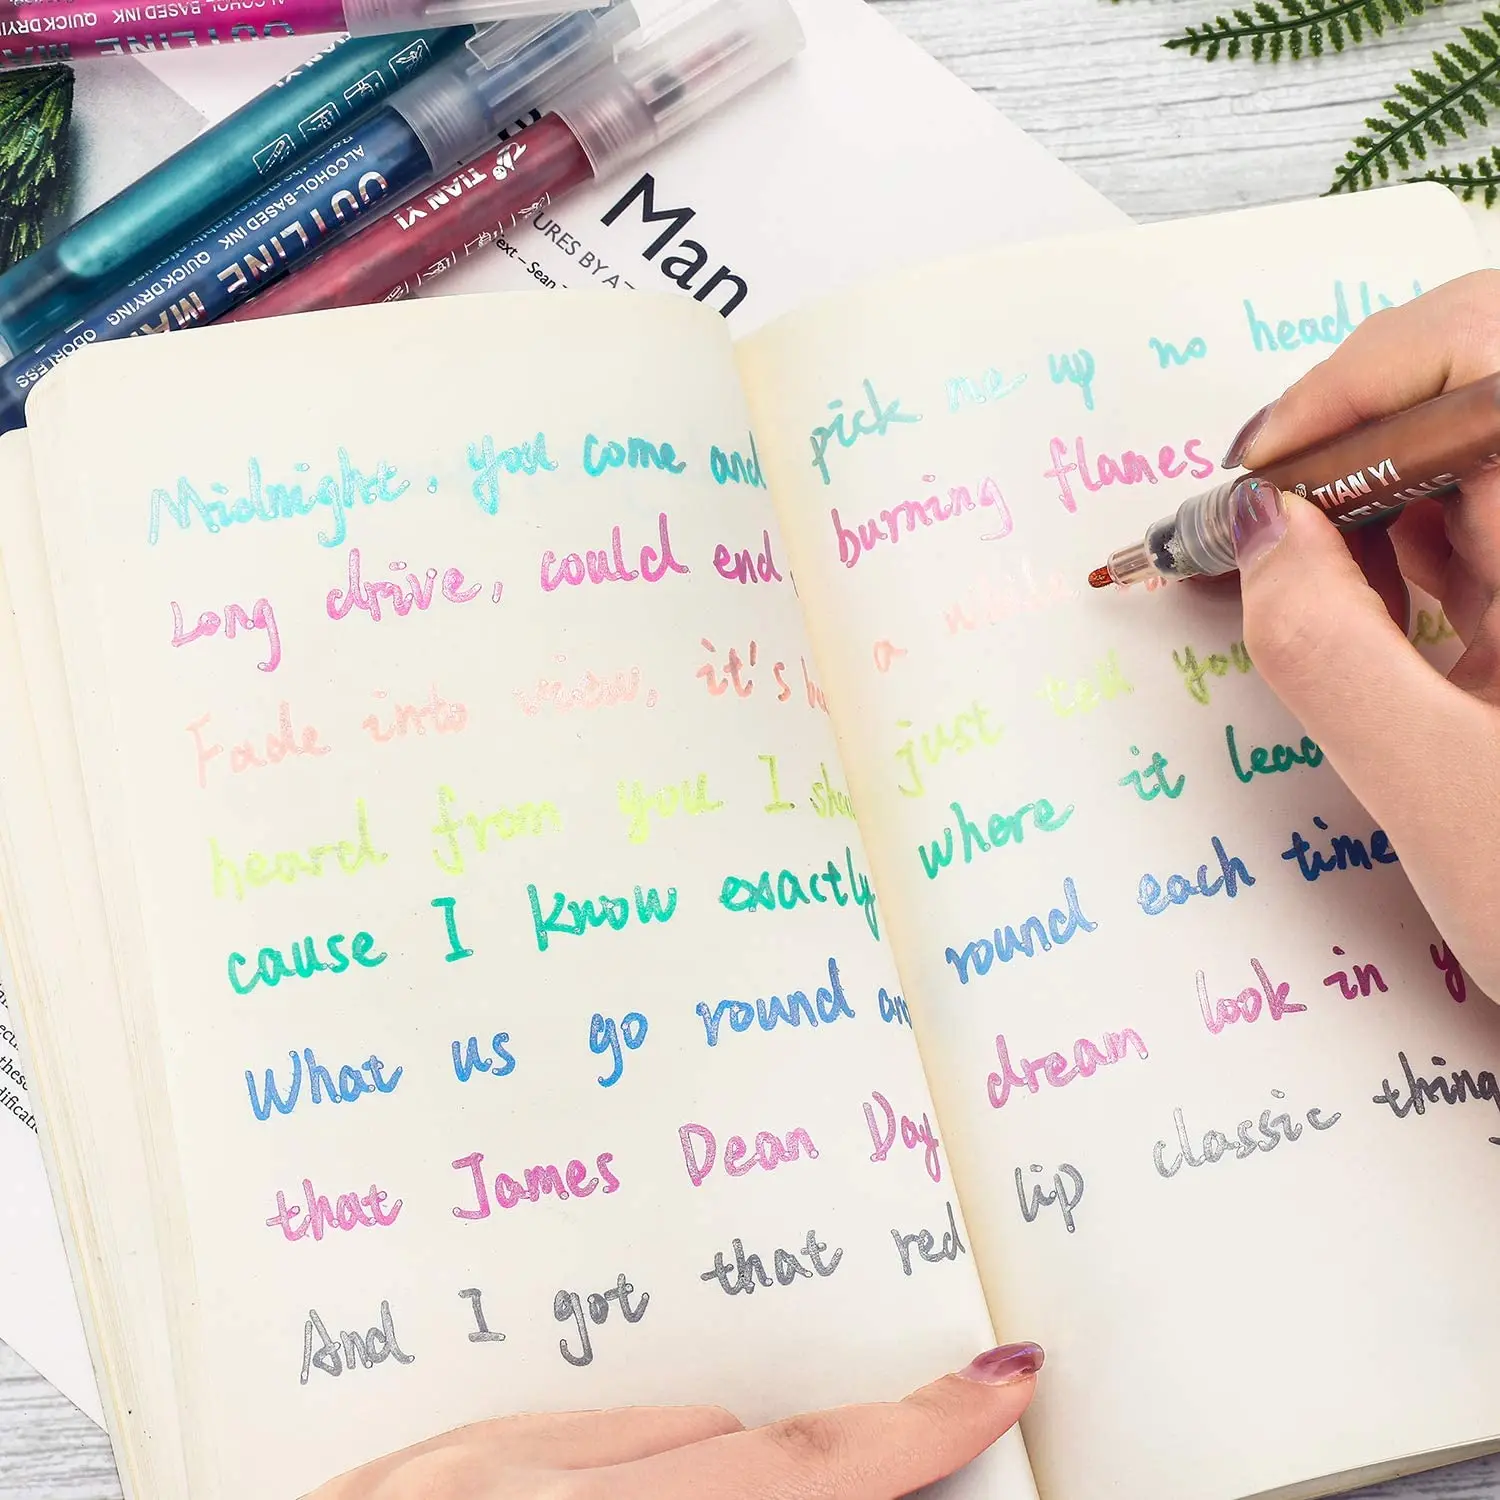 ALCOHOL-BASED INK QUICK DRYING
OUTLINE MA
TIAN YI
ALCOHOL-BASED INK QUICK DRYING ODORLESS
OUTLINE MA
TIAN YI
Man
URES BY A
ext – Sean
Midnight, you come and pick me up no
Long drive, could end burning flames
Fade into view, it's a while
heard from you I just tell you
cause I know exactly where it
What us go round round each time
that James Dean Day dream look in y
And I got that red lip classic thing
TIAN YI